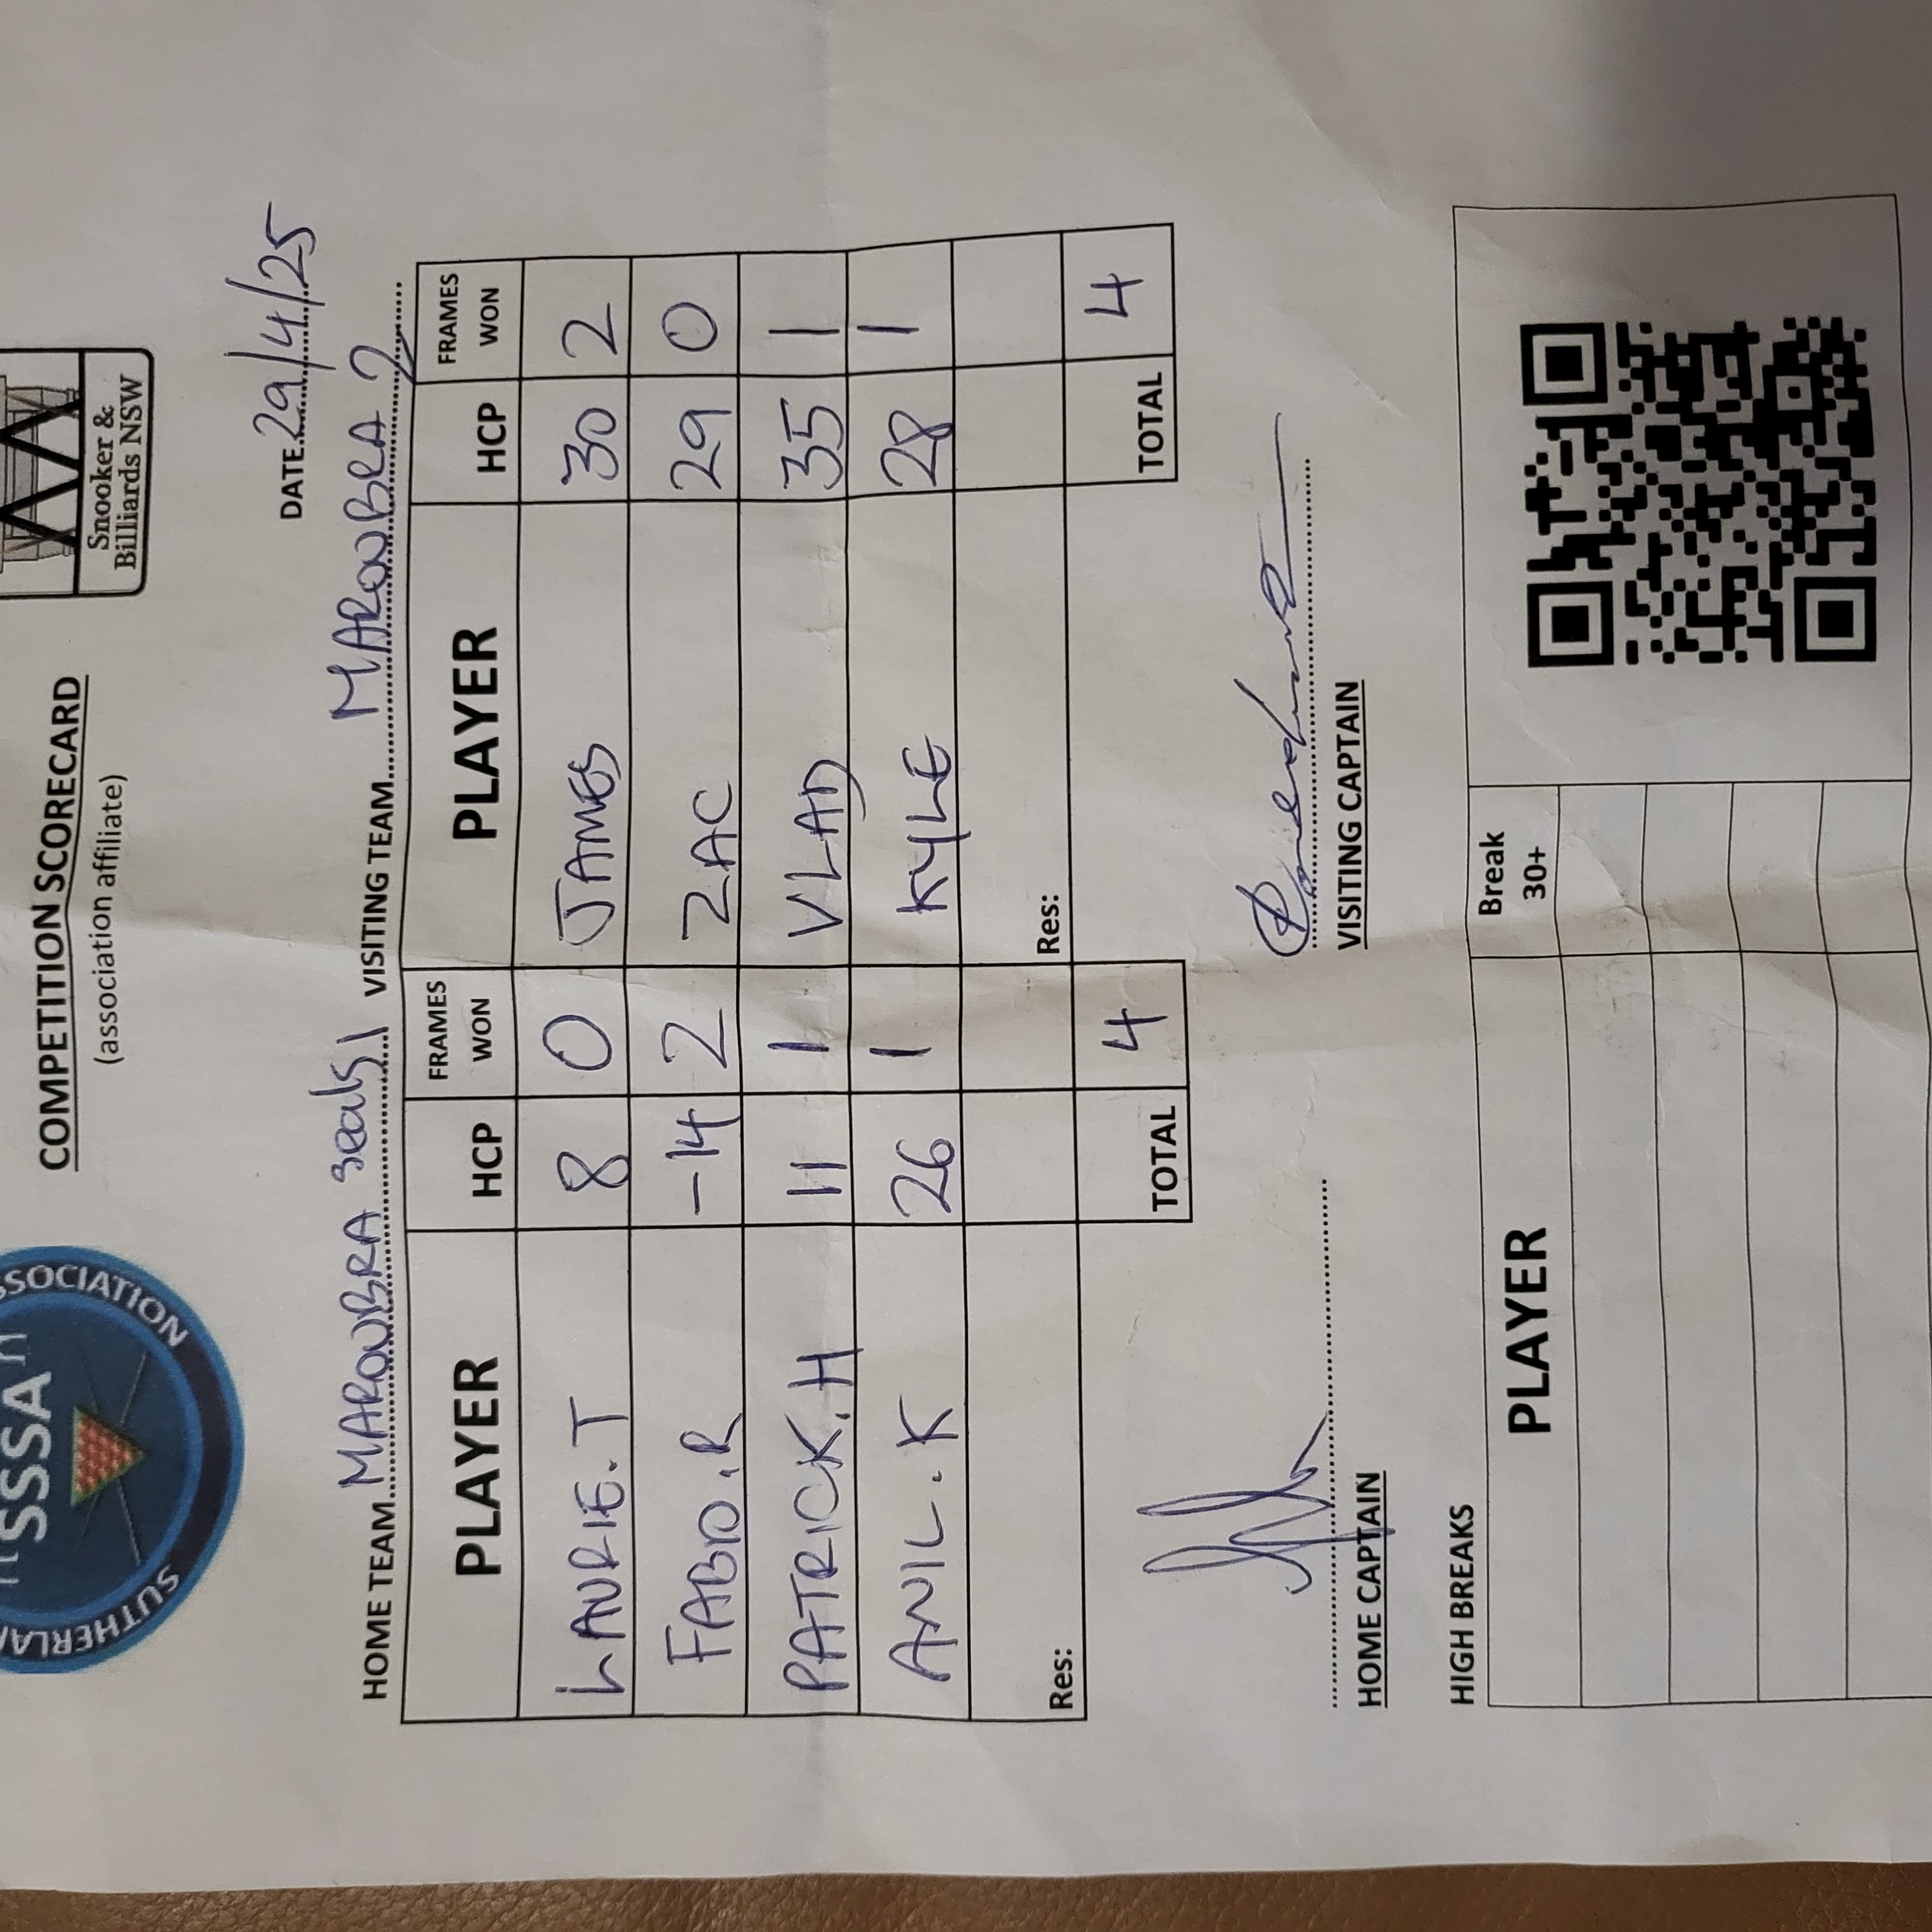 SSSA
SSOCIATION
SUTHERLA
COMPETITION SCORECARD
(association affiliate)
Snooker &
Billiards NSW
DATE 29/4/25
HOME TEAM MAROUBRA Seals 1 VISITING TEAM MAROUBRA 2
PLAYER HCP FRAMES WON PLAYER HCP FRAMES WON
LAURIE.T 8 0 JAMES 30 2
FABIO.R -14 2 ZAC 29 0
PATRICK.H 11 1 VLAD 35 1
ANIL.K 26 1 KYLE 28 1
Res: Res:
TOTAL 4 TOTAL 4
HOME CAPTAIN VISITING CAPTAIN
HIGH BREAKS
PLAYER Break 30+